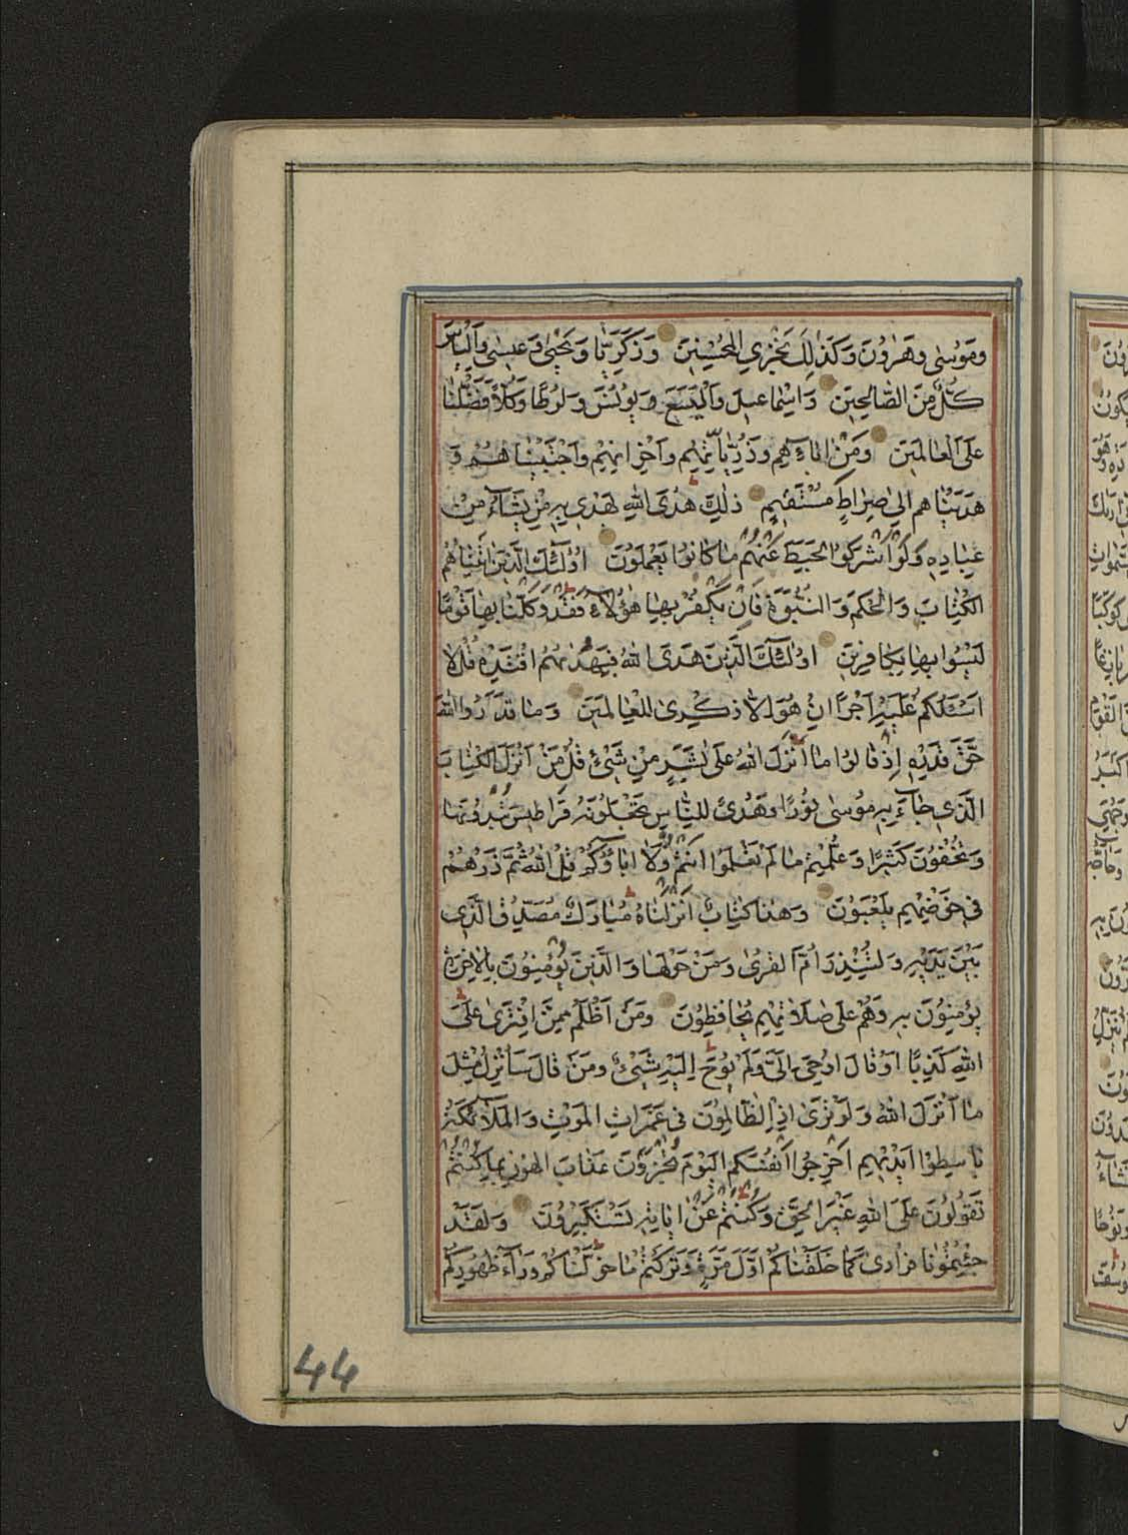 وَمُوسٰى وَهٰرُونَ وَكَذٰلِكَ نَجْزِي الْمُحْسِنِينَ وَزَكَرِيَّا وَيَحْيٰى وَعِيسٰى وَاِلْيَاسَ
كُلٌّ مِنَ الصَّالِحِينَ وَاِسْمَاعِيلَ وَالْيَسَعَ وَيُونُسَ وَلُوطًا وَكُلًّا فَضَّلْنَا
عَلَى الْعَالَمِينَ وَمِنْ اٰبَآئِهِمْ وَذُرِّيَّاتِهِمْ وَاِخْوَانِهِمْ وَاجْتَبَيْنَاهُمْ وَ
هَدَيْنَاهُمْ اِلٰى صِرَاطٍ مُسْتَقِيمٍ ذٰلِكَ هُدَى اللهِ يَهْدِي بِهِ مَنْ يَشَآءُ مِنْ
عِبَادِهِ وَلَوْ اَشْرَكُوا لَحَبِطَ عَنْهُمْ مَا كَانُوا يَعْمَلُونَ اُولٰٓئِكَ الَّذِينَ اٰتَيْنَاهُمُ
الْكِتَابَ وَالْحُكْمَ وَالنُّبُوَّةَ فَاِنْ يَكْفُرْ بِهَا هٰؤُلَآءِ فَقَدْ وَكَّلْنَا بِهَا قَوْمًا
لَيْسُوا بِهَا بِكَافِرِينَ اُولٰٓئِكَ الَّذِينَ هَدَى اللهُ فَبِهُدٰيهُمُ اقْتَدِهْ قُلْ لَا
اَسْئَلُكُمْ عَلَيْهِ اَجْرًا اِنْ هُوَ اِلَّا ذِكْرٰى لِلْعَالَمِينَ وَمَا قَدَرُوا اللهَ
حَقَّ قَدْرِهِ اِذْ قَالُوا مَا اَنْزَلَ اللهُ عَلٰى بَشَرٍ مِنْ شَيْئٍ قُلْ مَنْ اَنْزَلَ الْكِتَابَ
الَّذِي جَآءَ بِهِ مُوسٰى نُورًا وَهُدًى لِلنَّاسِ تَجْعَلُونَهُ قَرَاطِيسَ تُبْدُونَهَا
وَتُخْفُونَ كَثِيرًا وَعُلِّمْتُمْ مَا لَمْ تَعْلَمُوا اَنْتُمْ وَلَا اٰبَاؤُكُمْ قُلِ اللهُ ثُمَّ ذَرْهُمْ
فِي خَوْضِهِمْ يَلْعَبُونَ وَهٰذَا كِتَابٌ اَنْزَلْنَاهُ مُبَارَكٌ مُصَدِّقُ الَّذِي
بَيْنَ يَدَيْهِ وَلِتُنْذِرَ اُمَّ الْقُرٰى وَمَنْ حَوْلَهَا وَالَّذِينَ يُؤْمِنُونَ بِالْاٰخِرَةِ
يُؤْمِنُونَ بِهِ وَهُمْ عَلٰى صَلَاتِهِمْ يُحَافِظُونَ وَمَنْ اَظْلَمُ مِمَّنِ افْتَرٰى عَلَى
اللهِ كَذِبًا اَوْ قَالَ اُوحِيَ اِلَيَّ وَلَمْ يُوحَ اِلَيْهِ شَيْئٌ وَمَنْ قَالَ سَاُنْزِلُ مِثْلَ
مَا اَنْزَلَ اللهُ وَلَوْ تَرٰى اِذِ الظَّالِمُونَ فِي غَمَرَاتِ الْمَوْتِ وَالْمَلَآئِكَةُ
بَاسِطُوا اَيْدِيهِمْ اَخْرِجُوا اَنْفُسَكُمُ الْيَوْمَ تُجْزَوْنَ عَذَابَ الْهُونِ بِمَا كُنْتُمْ
تَقُولُونَ عَلَى اللهِ غَيْرَ الْحَقِّ وَكُنْتُمْ عَنْ اٰيَاتِهِ تَسْتَكْبِرُونَ وَلَقَدْ
جِئْتُمُونَا فُرَادٰى كَمَا خَلَقْنَاكُمْ اَوَّلَ مَرَّةٍ وَتَرَكْتُمْ مَا خَوَّلْنَاكُمْ وَرَآءَ ظُهُورِكُمْ
44